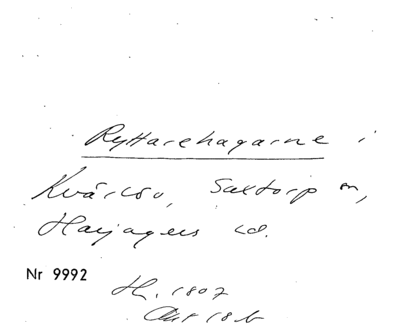 Ryttarehagarne i
Kvärlöv, Saxtorp sn,
Harjagers hd.
Nr 9992
H. 1807
Akt 18 b